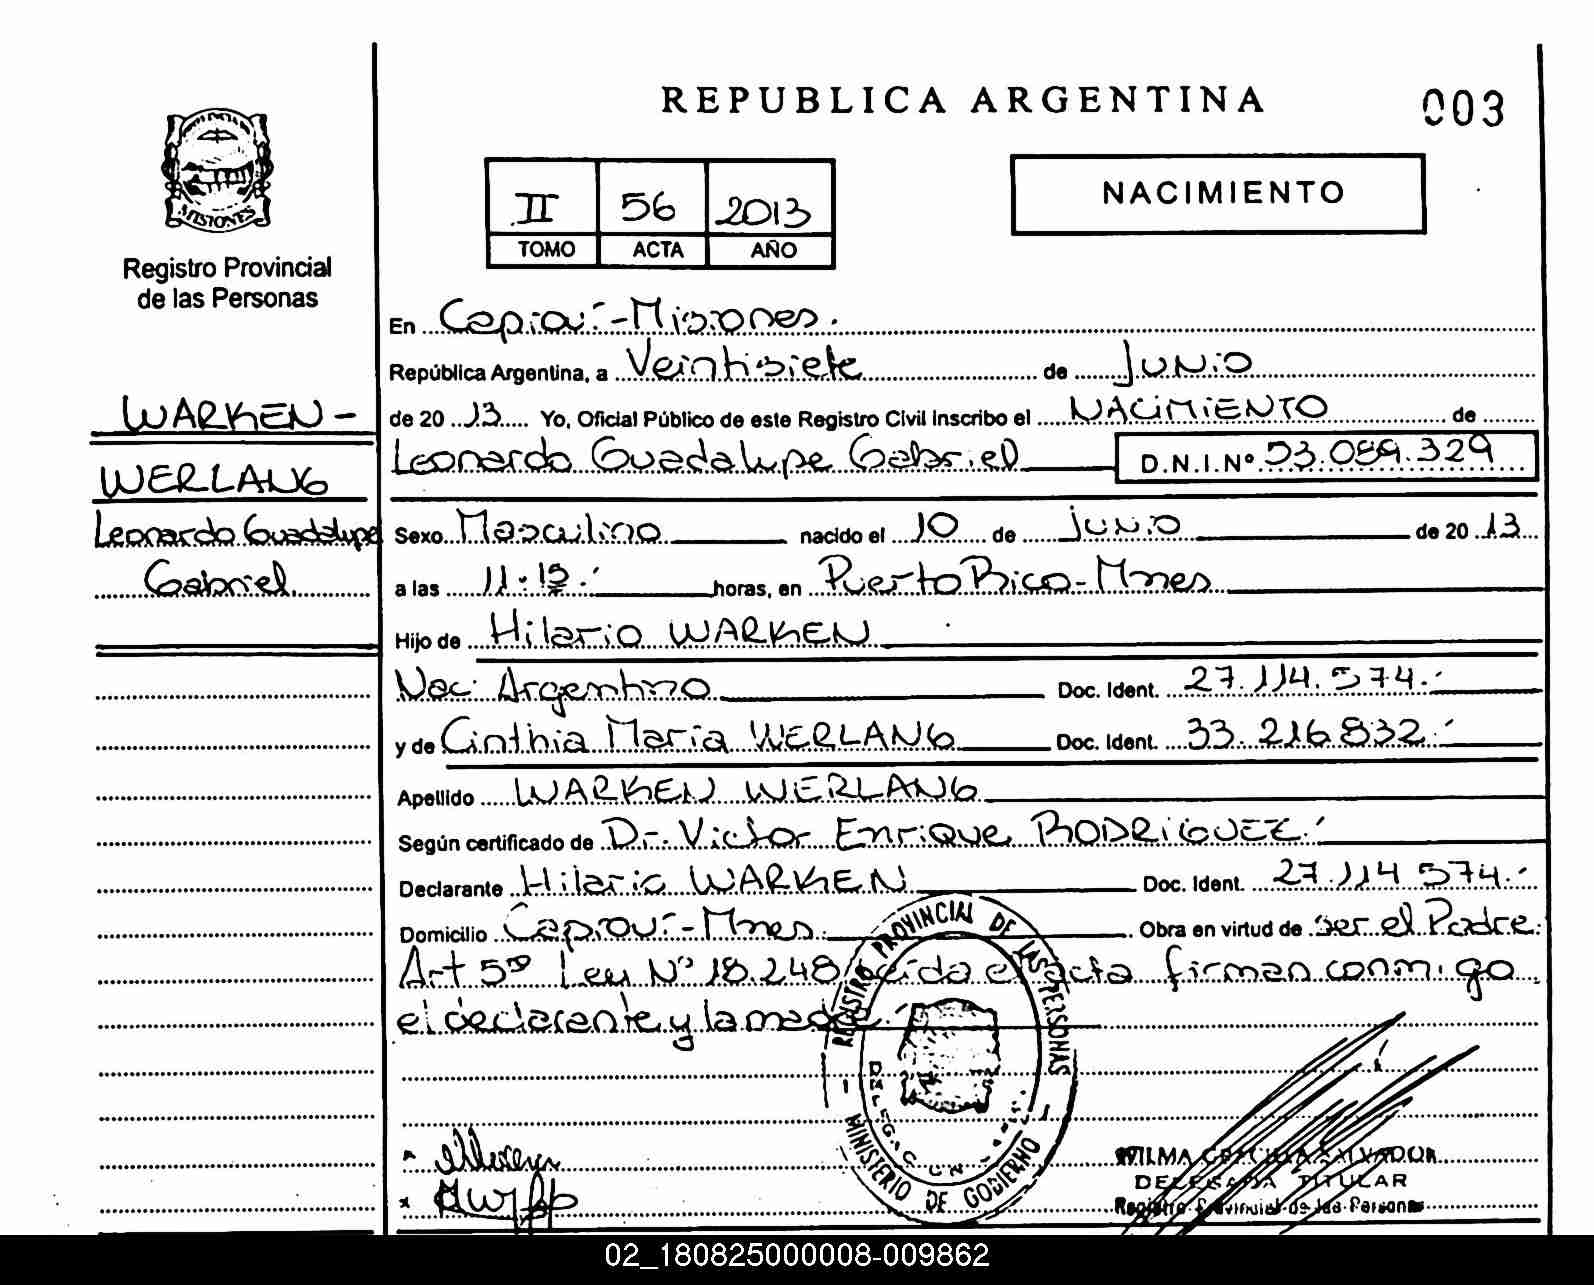 REPUBLICA ARGENTINA
003
MISIONES
Registro Provincial
de las Personas
II 56 2013
TOMO ACTA AÑO
NACIMIENTO
WARKEN -
WERLANG
Leonardo Guadalupe
Gabriel
En Capioví - Misiones.
República Argentina, a Veintisiete de Junio
de 20 13 Yo, Oficial Público de este Registro Civil inscribo el NACIMIENTO de
Leonardo Guadalupe Gabriel D.N.I.Nº 53.089.329
Sexo Masculino nacido el 10 de junio de 20 13
a las 11:15 horas, en Puerto Rico - Mnes
Hijo de Hilario WARKEN
Nac: Argentino Doc. Ident. 27.114.574.-
y de Cinthia María WERLANG Doc. Ident. 33.216.832.-
Apellido WARKEN WERLANG
Según certificado de Dr. Victor Enrique RODRIGUEZ.-
Declarante Hilario WARKEN Doc. Ident. 27.114 574.-
Domicilio Capioví - Mnes. Obra en virtud de ser el Padre.
Art 5to Ley Nº 18.248 leida el acta firman conmigo
el declarante y la madre.
REGISTRO PROVINCIAL DE LAS PERSONAS
MINISTERIO DE GOBIERNO
WILMA SALVADOR
DELEGADA TITULAR
Registro Provincial de las Personas
02_180825000008-009862